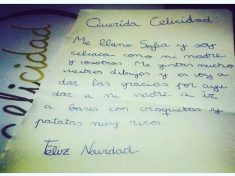 Celicidad
Querida Celicidad:
Me llamo Sofía y soy
celiaca como mi madre
y vosotras. Me gustan mucho
vuestros dibujos y os voy a
dar las gracias por ayu
dar a mi madre a ir
a bares con croquetas y
patatas muy ricos
Feliz Navidad